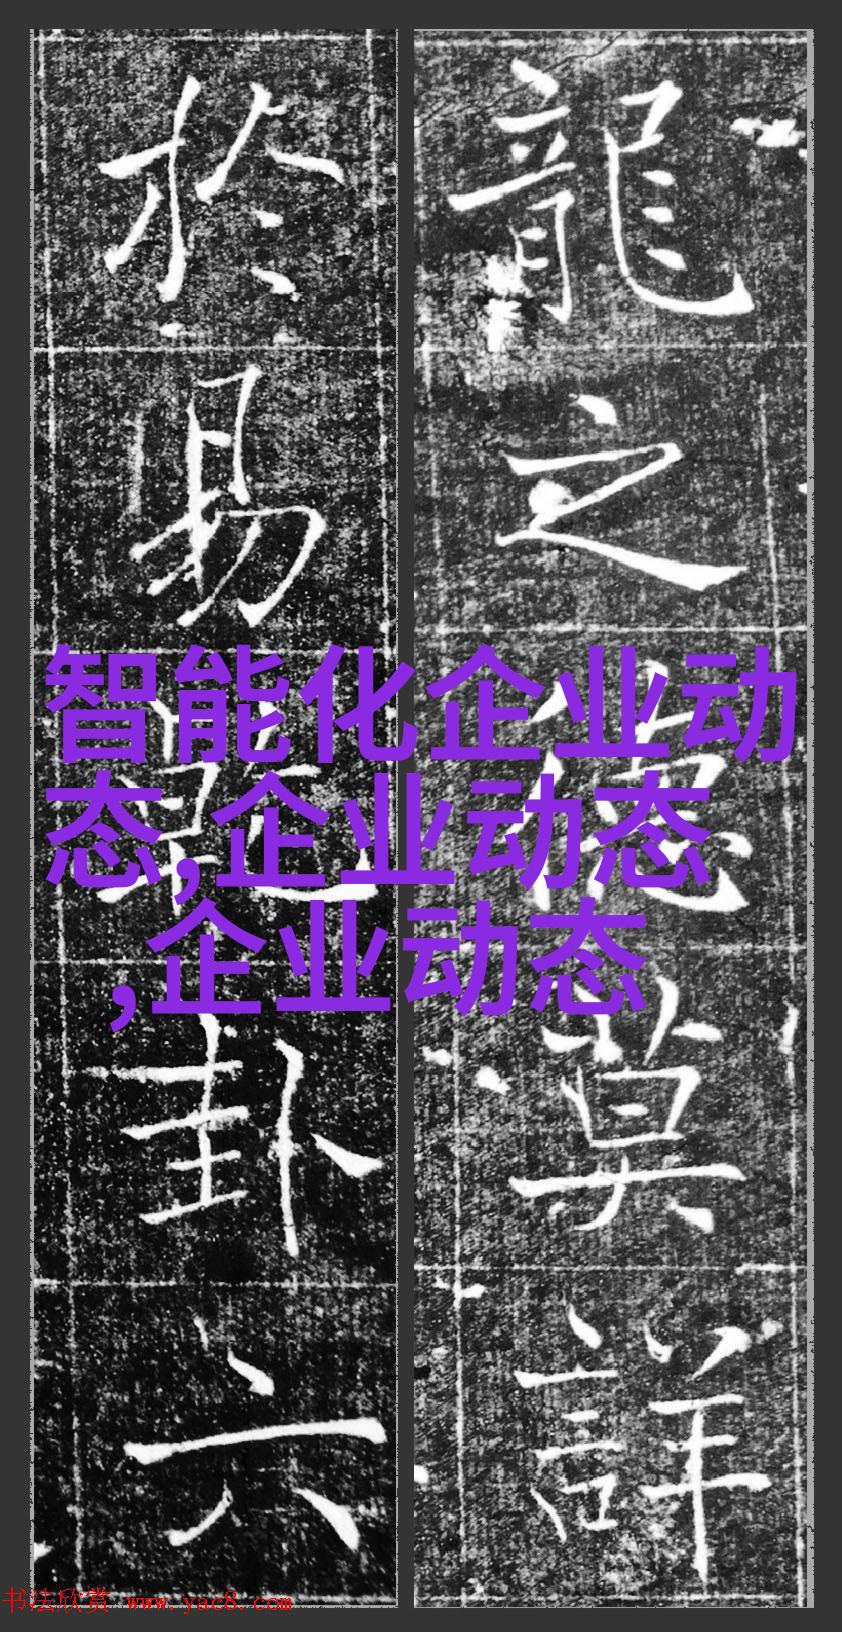 龍之德莫詳
於易乾卦六
智能化企业动
态,企业动态
,企业动态
书法欣赏 www.yac8.com